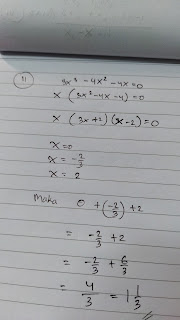 11
3x³ - 4x² - 4x = 0
x (3x² - 4x - 4) = 0
x (3x + 2) (x - 2) = 0
x = 0
x = -2/3
x = 2
Maka 0 + (-2/3) + 2
= -2/3 + 2
= -2/3 + 6/3
= 4/3 = 1 1/3